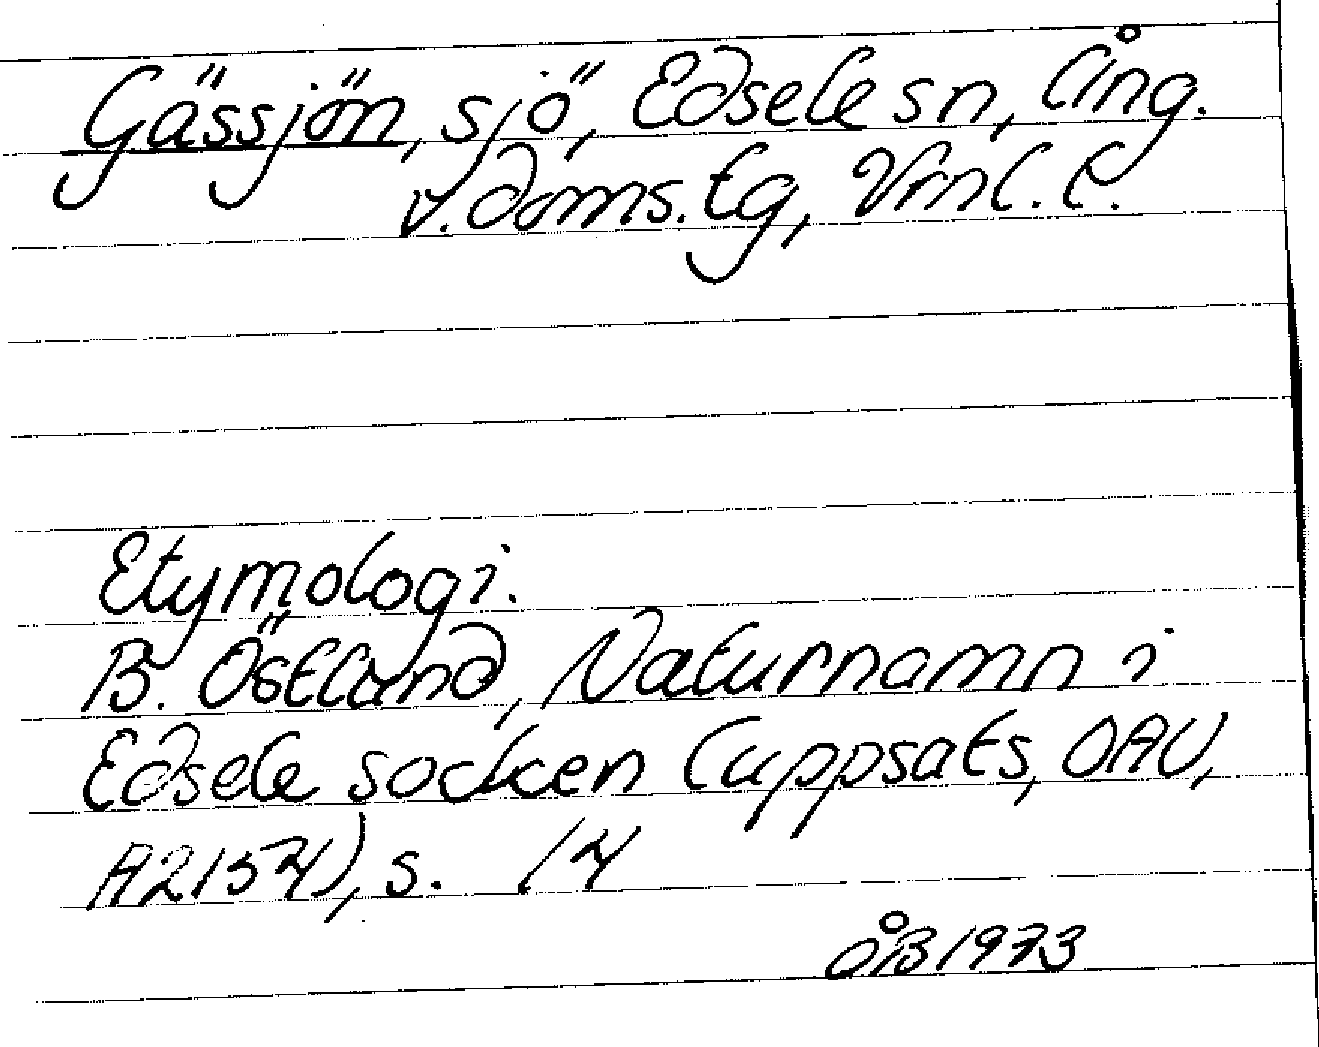 Gässjön, sjö, Edsele sn, Ång.
v. doms. tg, Vrnl. l.
Etymologi.
B. Östlund, Naturnamn i
Edsele socken (uppsats, OAU,
A2154), s. 14
ÅB 1973